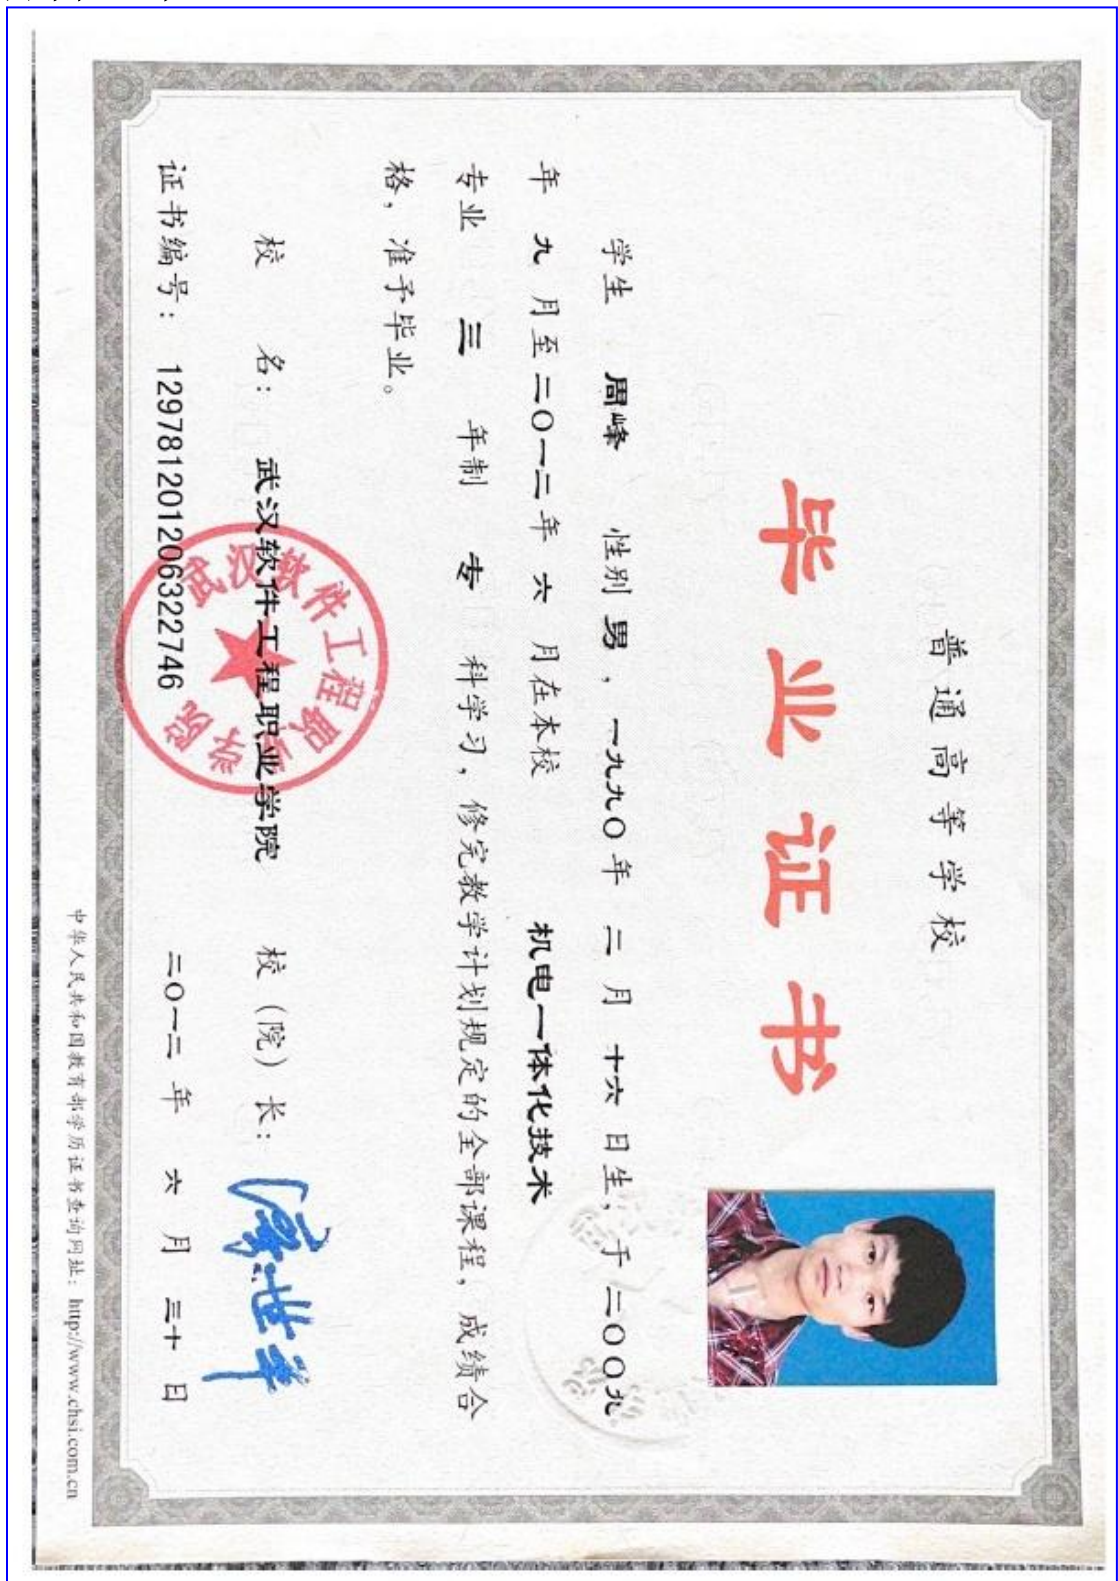 普通高等学校
毕业证书
学生 周峰 性别 男，一九九〇年 二 月 十六 日生，于 二〇〇九
年 九 月至 二〇一二 年 六 月在本校 机电一体化技术
专业 三 年制 专 科学习，修完教学计划规定的全部课程，成绩合
格，准予毕业。
校 名： 武汉软件工程职业学院 校（院）长：
武汉软件工程职业学院
证书编号： 129781201206322746 二〇一二 年 六 月 三十 日
中华人民共和国教育部学历证书查询网址：http://www.chsi.com.cn